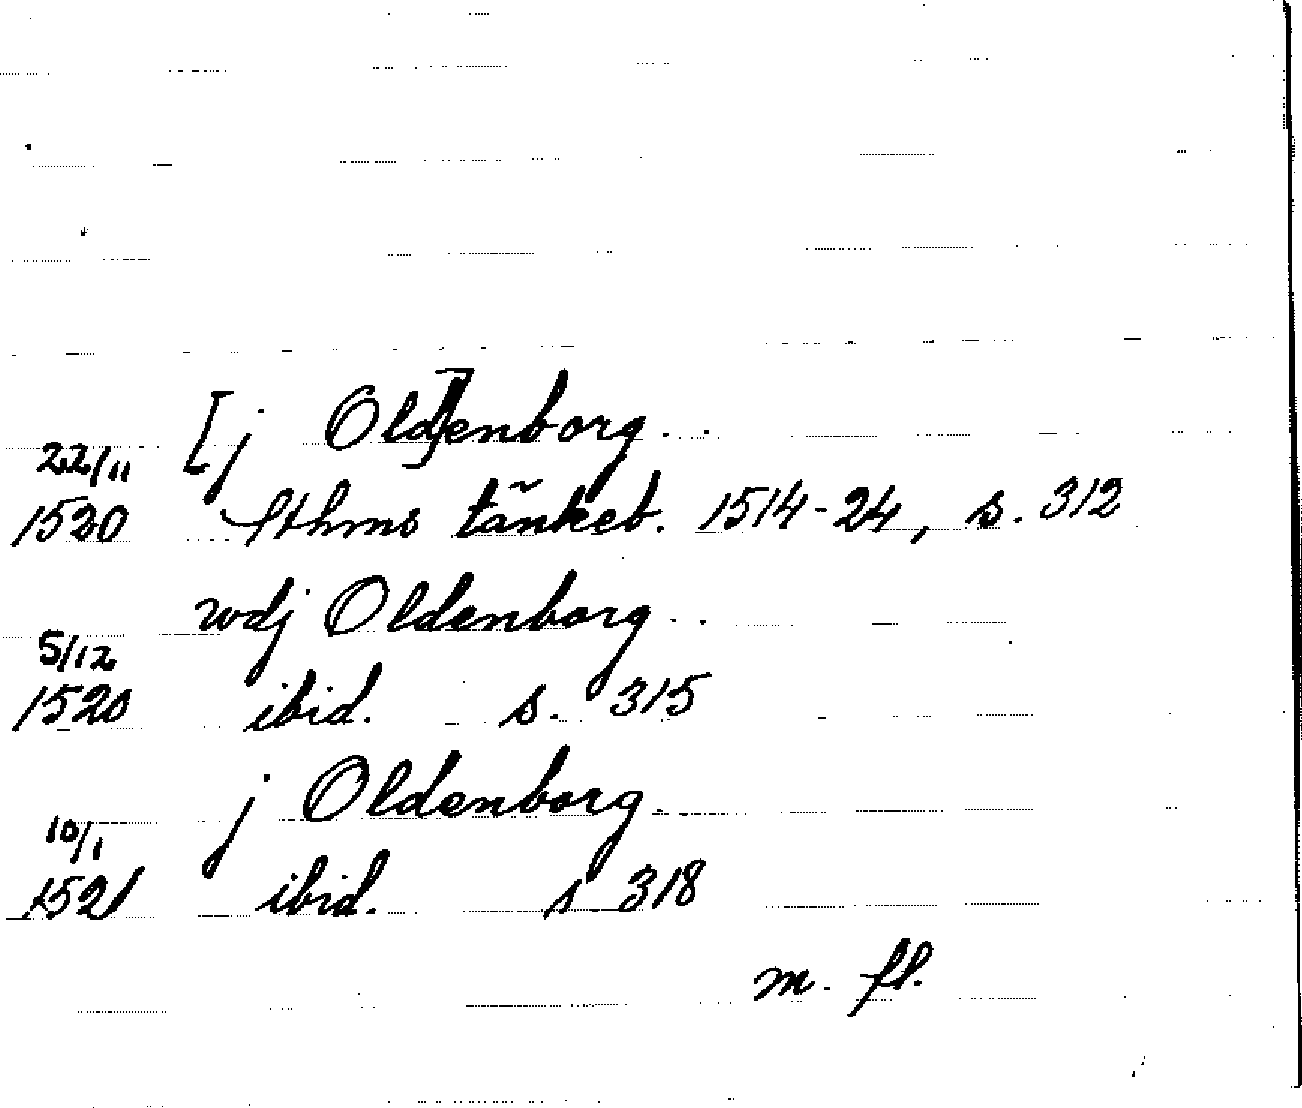 [j Old]enborg.
22/11
1520 Sthms tänkeb. 1514-24, s. 312
wdj Oldenborg
5/12
1520 ibid. s. 315
j Oldenborg
10/1
1521 ibid. s 318
m. fl.